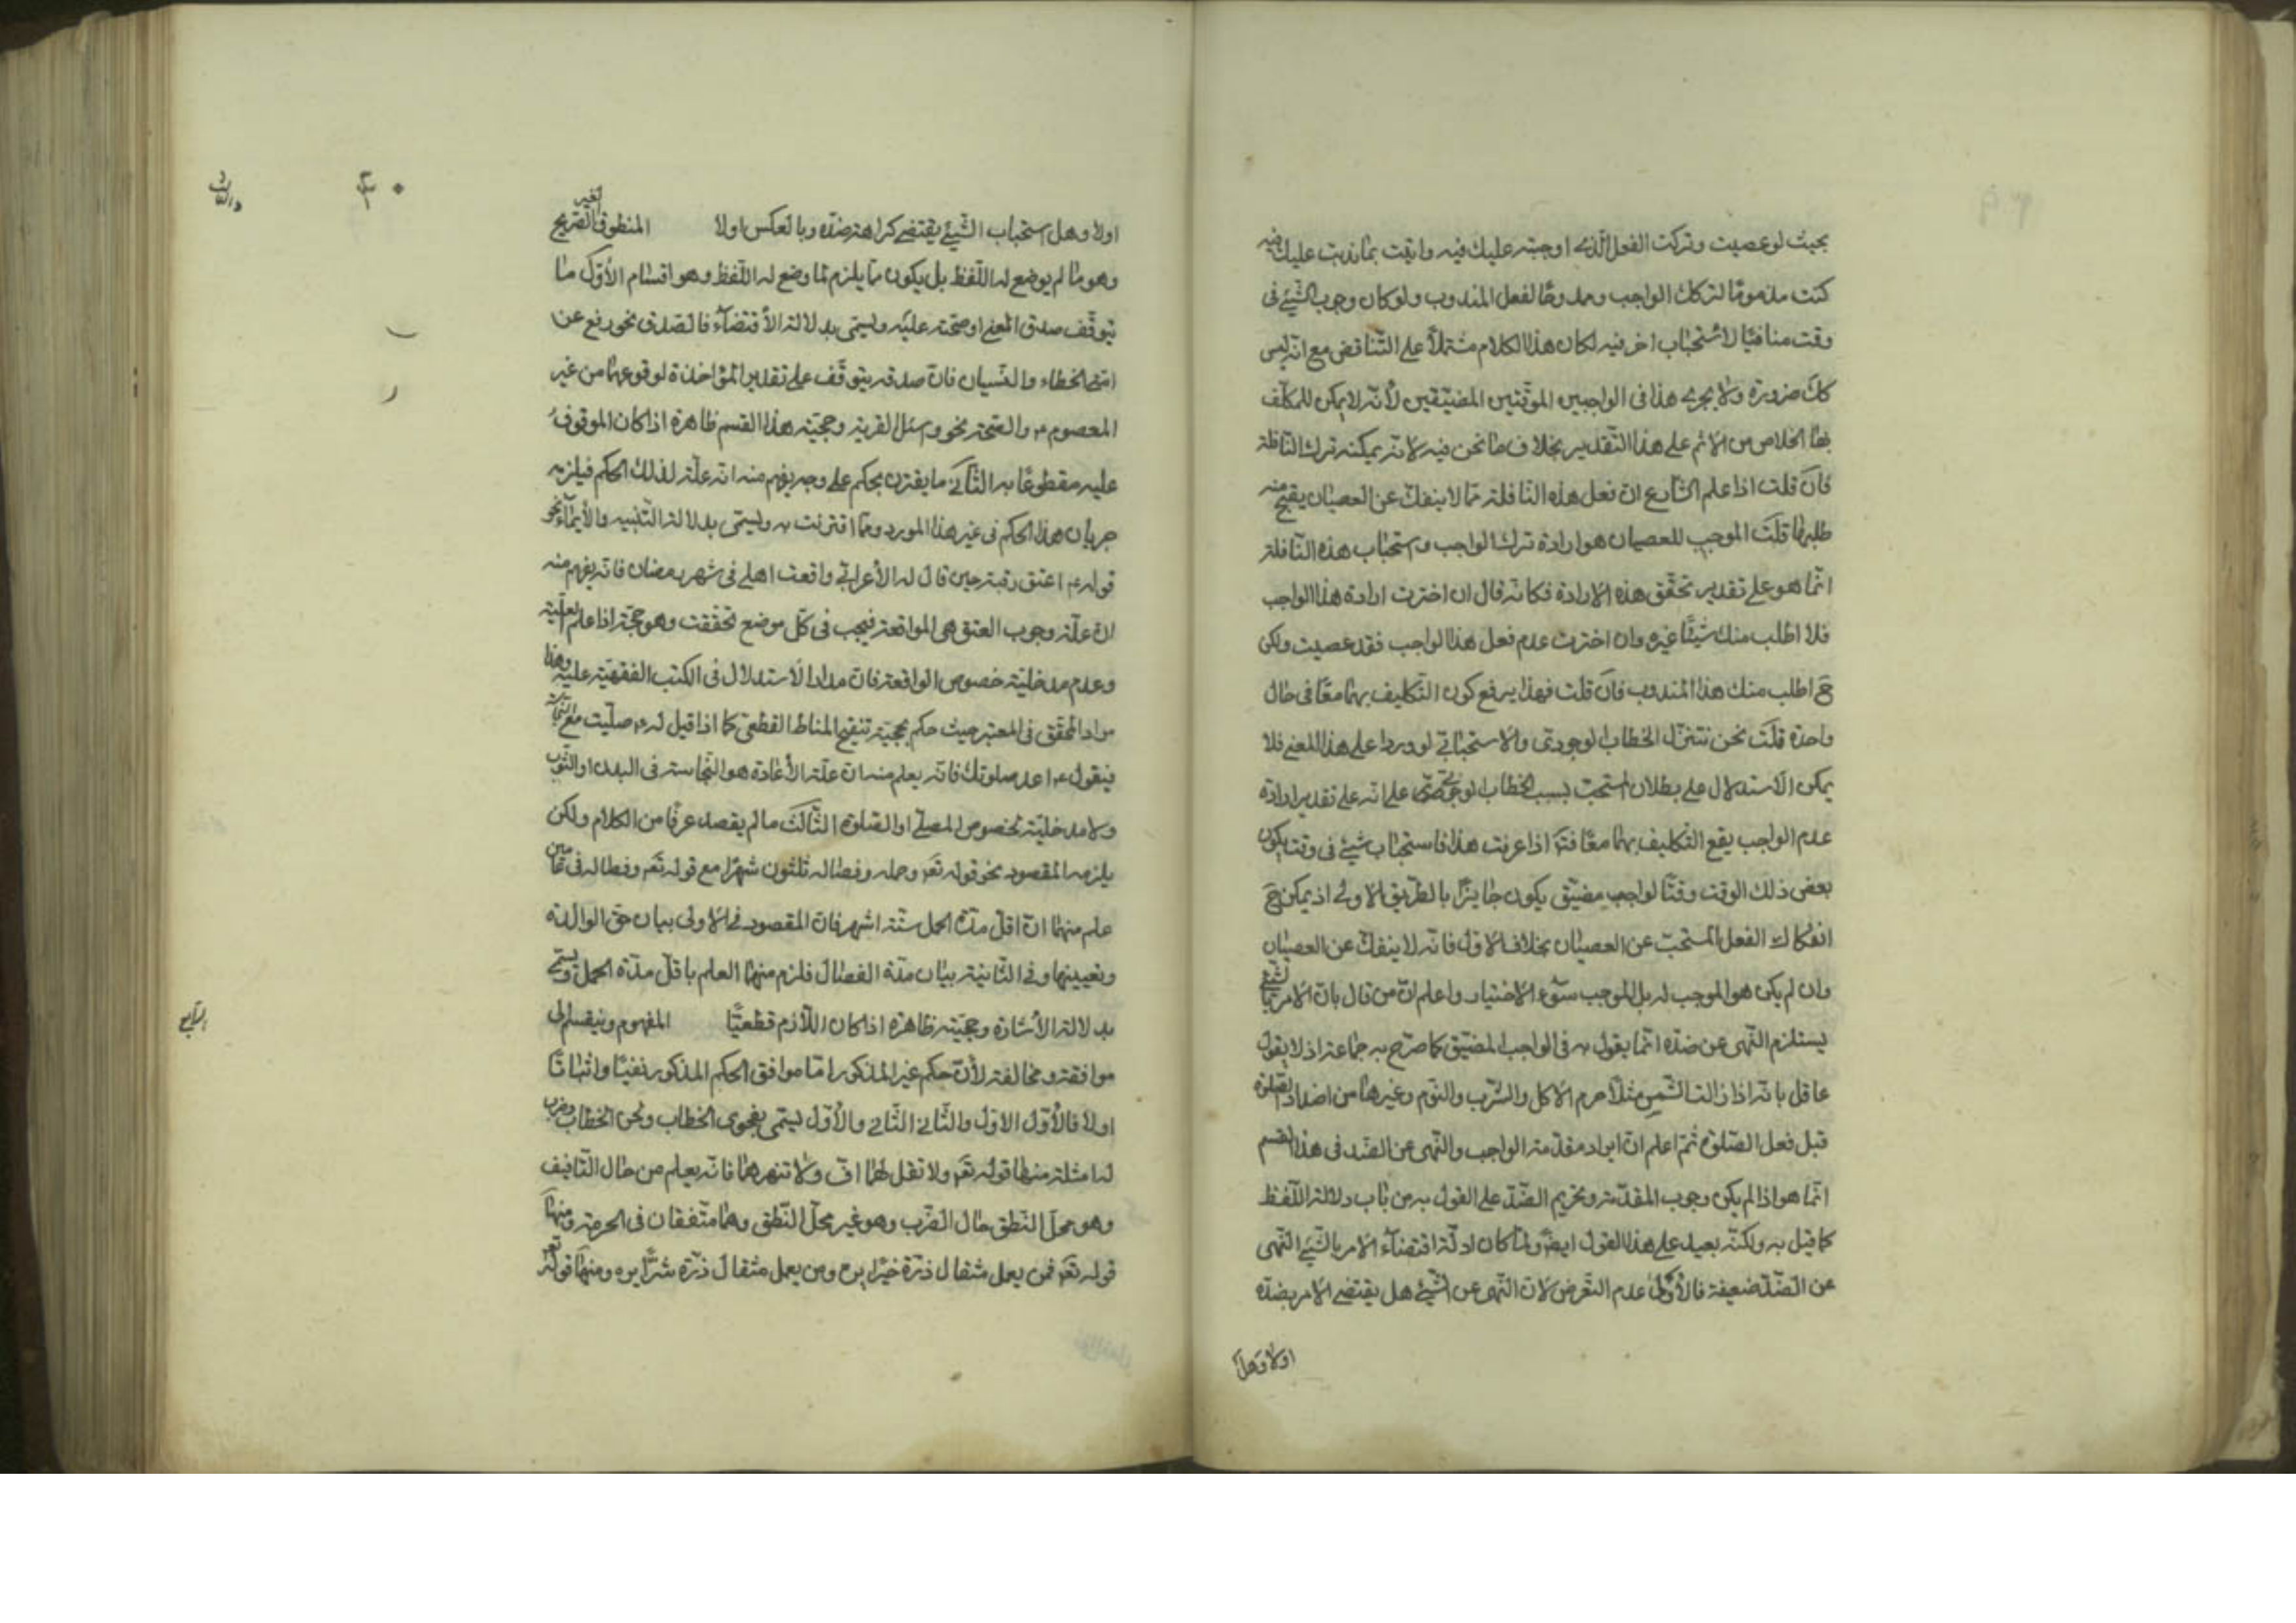 بحيث لو عصيت وتركت الفعل الذى اوجبته عليك فيه واتيت بما ندبت عليك فيه
كنت مذموما لترك الواجب وممدوحا لفعل المندوب ولو كان وجوب الشيئ فى
وقت منافيا لاستحباب اخر فيه لكان هذا الكلام مشتملا على التناقض مع انه ليس
كك ضرورة ولا يجرى هذا فى الواجبين الموقتين المضيقين لأنه لا يمكن للمكلف
الخلاص من الاثم على هذا التقدير بخلاف ما نحن فيه لانه يمكنه ترك النافلة
فان قلت اذا علم الشارع ان فعل هذه النافلة مما لا ينفك عن العصيان يقبح منه
طلبها قلت الموجب للعصيان هو ارادة ترك الواجب واستحباب هذه النافلة
انما هو على تقدير تحقق هذه الارادة فكانه قال ان اخترت ارادة هذا الواجب
فلا اطلب منك شيئا غيره وان اخترت عدم فعل هذا الواجب فقد عصيت ولكن
ح اطلب منك هذا المندوب فان قلت فهذا يرفع كون التكليف بهما معا فى حال
واحدة قلت نحن ننزل الخطاب الوجوبى والاستحبابى لو وردا على هذا المعنى فلا
يمكن الاستدلال على بطلان المستحب بسبب الخطاب الوجوبى على انه على تقدير ارادة
عدم الواجب يقع التكليف بهما معا اذا عرفت هذا فاستحباب شيئ فى وقت يكون
بعض ذلك الوقت وقتا لواجب مضيق يكون جايزا بالطريق الاولى اذ يمكن ح
انفكاك الفعل المستحب عن العصيان بخلاف الاول فانه لا ينفك عن العصيان
وان لم يكن هو الموجب له بل الموجب سوء الاختيار واعلم ان من قال بان الامر بالشيئ
يستلزم النهى عن ضده انما يقول به فى الواجب المضيق كما صرح به جماعة اذ لا يقول
عاقل بانه اذا زالت الشمس مثلا حرم الاكل والشرب والنوم وغيرها من اضداد الصلوة
قبل فعل الصلوة ثم اعلم ان ايراد مقدمة الواجب والنهى عن الضد فى هذا القسم
انما هو اذا لم يكن وجوب المقدمة وتحريم الضد على القول به من باب دلالة اللفظ
كما قيل به ولكنه بعيد على هذا القول ايض ولما كان ادلة اقتضاء الامر بالشيئ النهى
عن الضد ضعيفة فالأولى عدم التعرض لان النهى عن الشيئ هل يقتضى الامر بضده
اولا وهل
٤٠
اولا وهل استحباب الشيئ يقتضى كراهة ضده وبالعكس اولا المنطوق الغير الصريح
وهو ما لم يوضع له اللفظ بل يكون مما يلزم لما وضع له اللفظ وهو اقسام الأول ما
يتوقف صدق المعنى او صحته عليه ويسمى بدلالة الأقتضاء فالصدق نحو رفع عن
امتى الخطاء والنسيان فان صدقه يتوقف على تقدير المؤاخذة لوقوعهما من غير
المعصوم ع والصحة نحو واسئل القرية وحجية هذا القسم ظاهرة اذا كان الموقوف
عليه مقطوعا به الثانى ما يقترن بحكم على وجه يفهم منه انه علة لذلك الحكم فيلزمه
جريان هذا الحكم فى غير هذا المورد مما اقترنت به ويسمى بدلالة التنبيه والأيماء نحو
قوله ع اعتق رقبة حين قال له الأعرابى واقعت اهلى فى شهر رمضان فانه يفهم منه
ان علة وجوب العتق هى المواقعة فيجب فى كل موضع تحققت وهو حجة اذا علم العلية
وعدم مدخلية خصوص الواقعة فان مدار الاستدلال فى الكتب الفقهية عليه وهذا
مراد المحقق فى المعتبر حيث حكم بحجية تنقيح المناط القطعى كما اذا قيل له ع صليت مع النجاسة
فيقول ع اعد صلوتك فانه يعلم منه ان علة الأعادة هو النجاسة فى البدن او الثوب
ولا مدخلية لخصوص المصلى او الصلوة الثالث ما لم يقصد عرفا من الكلام ولكن
يلزمه المقصود نحو قوله تع وحمله وفصاله ثلثون شهرا مع قوله تع وفصاله فى عامين
علم منهما ان اقل مدة الحمل ستة اشهر فان المقصود فى الاولى بيان حق الوالدة
وتعبها وفى الثانية بيان مدة الفصال فلزم منهما العلم باقل مدة الحمل ويسمى
بدلالة الأشارة وحجيته ظاهرة اذا كان اللازم قطعيا المفهوم وينقسم الى
موافقة ومخالفة لأن حكم غير المذكور اما موافق الحكم المذكور نفيا واثباتا
اولا فالأول الاول والثانى الثانى والأول يسمى بفحوى الخطاب ولحن الخطاب وضرب
له امثلة منها قوله تع ولا تقل لهما اف ولا تنهرهما فانه يعلم من حال التافيف
وهو محل النطق حال الضرب وهو غير محل النطق وهما متفقان فى الحرمة ومنها
قوله تع فمن يعمل مثقال ذرة خيرا يره ومن يعمل مثقال ذرة شرا يره ومنها قوله تع
الرابع